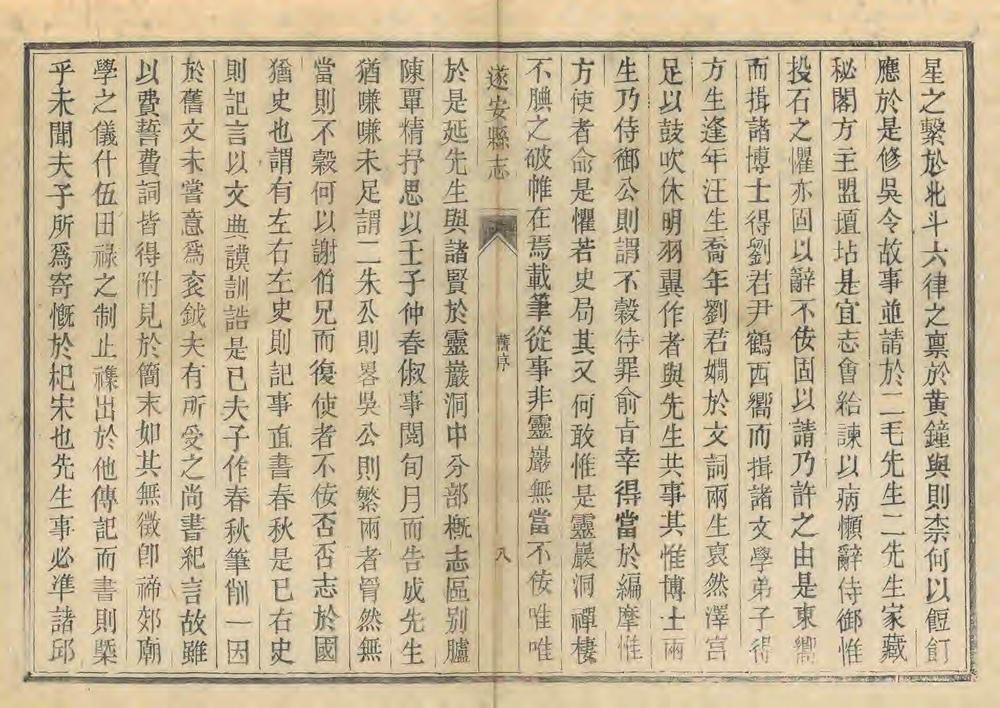 星之繫於北斗六律之禀於黄鐘與則柰何以餖飣
應於是修吳令故事並請於二毛先生二先生家藏
秘閣方主盟壇坫是宜志會給諫以病懶辭侍御惟
投石之懼亦固以辭不佞固以請乃許之由是東嚮
而揖諸博士得劉君尹鶴西嚮而揖諸文學弟子得
方生逢年汪生喬年劉君嫺於文詞兩生裒然澤宫
足以鼓吹休明羽翼作者與先生共事其惟博士兩
生乃侍御公則謂不穀待罪俞旨幸得當於編摩惟
方使者命是懼若史局其又何敢惟是靈巖洞禪棲
不腆之破帷在焉載筆從事非靈巖無當不佞唯唯
遂安縣志
舊序
八
於是延先生與諸賢於靈巖洞中分部概志區别臚
陳覃精抒思以壬子仲春俶事閱旬月而告成先生
猶嗛嗛未足謂二朱公則畧吳公則繁兩者胥然無
當則不穀何以謝伯兄而復使者不佞否否志於國
猶史也謂有左右左史則記事直書春秋是已右史
則記言以文典謨訓誥是已夫子作春秋筆削一因
於舊文未嘗意爲衮鉞夫有所受之尚書紀言故雖
以費誓費詞皆得附見於簡末如其無徵卽禘郊廟
學之儀什伍田禄之制止襍出於他傳記而書則槩
乎未聞夫子所爲寄慨於杞宋也先生事必準諸邱